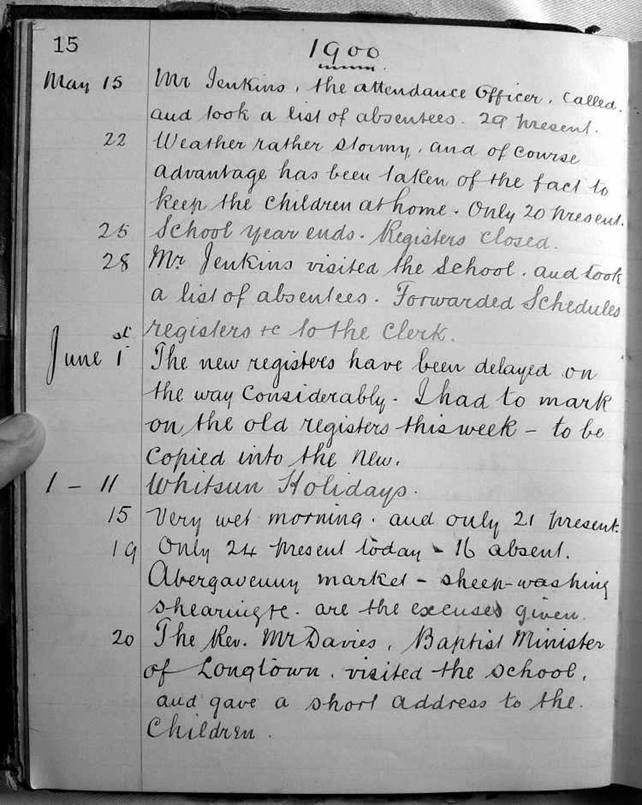 15
1900
May 15 Mr Jenkins, the attendance Officer, called,
and took a list of absentees. 29 present.
22 Weather rather stormy, and of course
advantage has been taken of the fact to
keep the children at home. Only 20 present.
25 School year ends. Registers closed.
28 Mr Jenkins visited the School, and took
a list of absentees. Forwarded Schedules
registers &c to the Clerk.
June 1st The new registers have been delayed on
the way considerably. I had to mark
on the old registers this week – to be
copied into the new.
1 – 11 Whitsun Holidays.
15 Very wet morning, and only 21 present.
19 Only 24 present today – 16 absent.
Abergavenny market – sheep-washing
shearing &c. are the excuses given.
20 The Rev. Mr Davies, Baptist Minister
of Longtown, visited the school,
and gave a short address to the
Children.